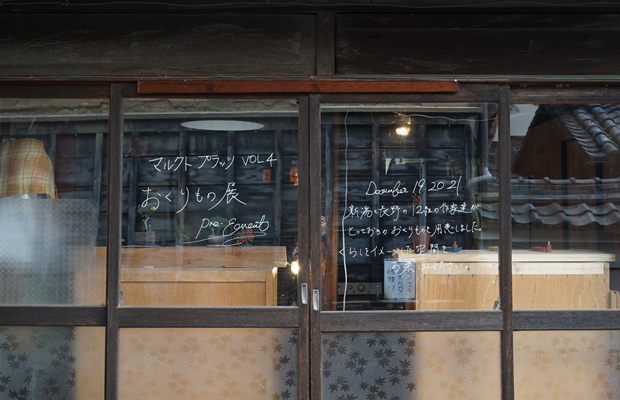 マルクト プラッツ VOL4
おくりもの展
pre-Event
December 19 20 21
新潟と長野の12組の作家達が
とっておきの おくりものを用意しました。
くらしをイメージした空間を